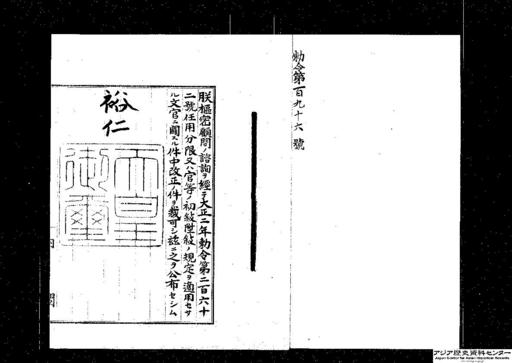 勅令第百九十六號
朕樞密顧問ノ諮詢ヲ經テ大正二年勅令第二百六十
二號任用分限又ハ官等ノ初敍陞敍ノ規定ヲ適用セサ
ル文官ニ關スル件中改正ノ件ヲ裁可シ玆ニ之ヲ公布セシム
裕仁
天皇
御璽
アジア歴史資料センター
Japan Center for Asian Historical Records